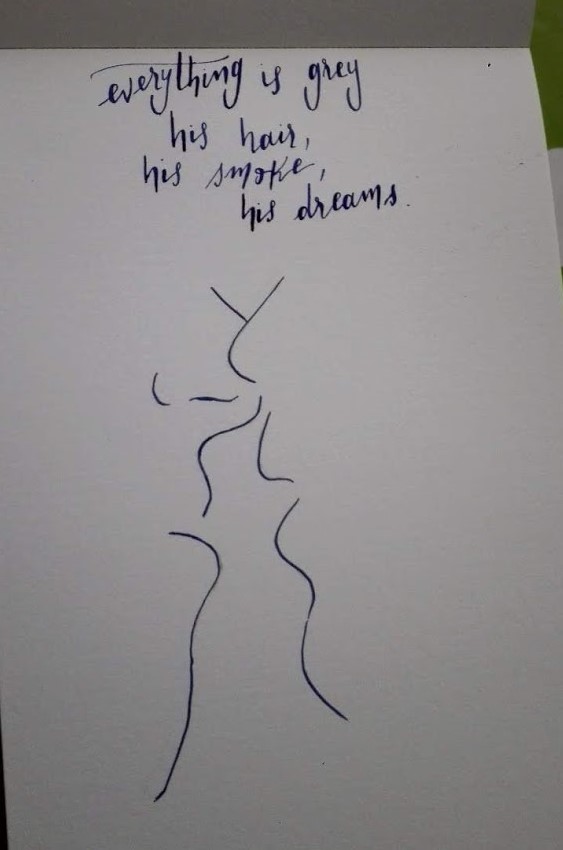 everything is grey
his hair,
his smoke,
his dreams.